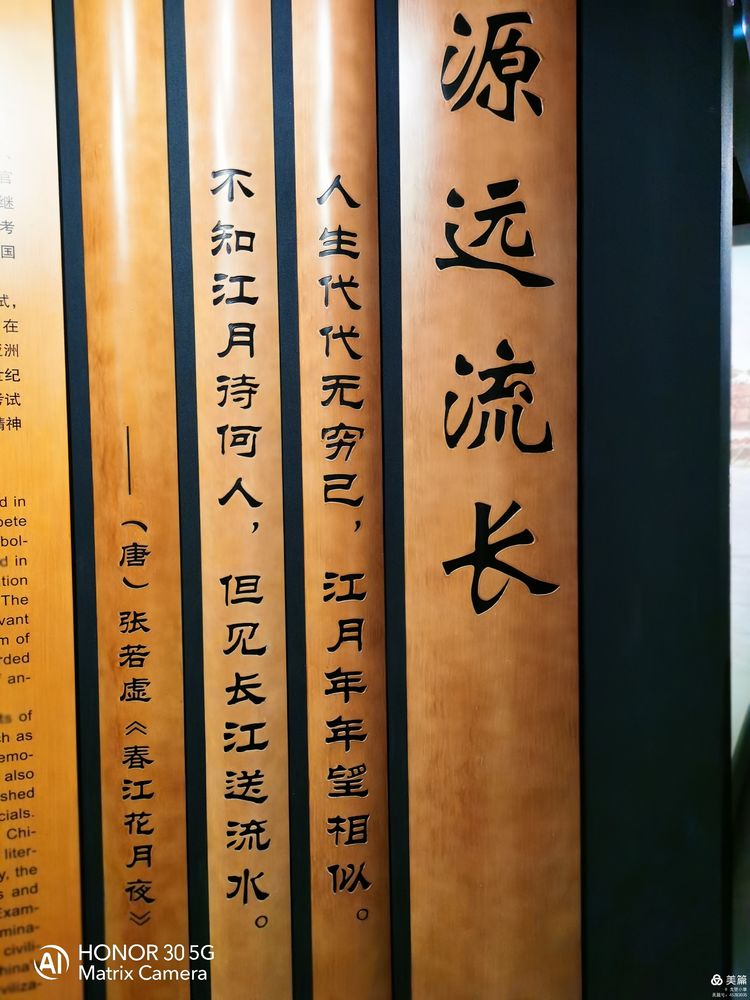 源远流长
人生代代无穷已，江月年年望相似。
不知江月待何人，但见长江送流水。
——（唐）张若虚《春江花月夜》
官
继
考
国
试，
在
洲
纪
试
精神
d in
pete
bol-
d in
tion
The
vant
m of
rded
an-
ts of
ch as
emo-
also
shed
cials.
Chi-
liter-
y, the
s and
Exam-
mina-
civili-
hina
viliza-
AI
HONOR 30 5G
Matrix Camera
美篇